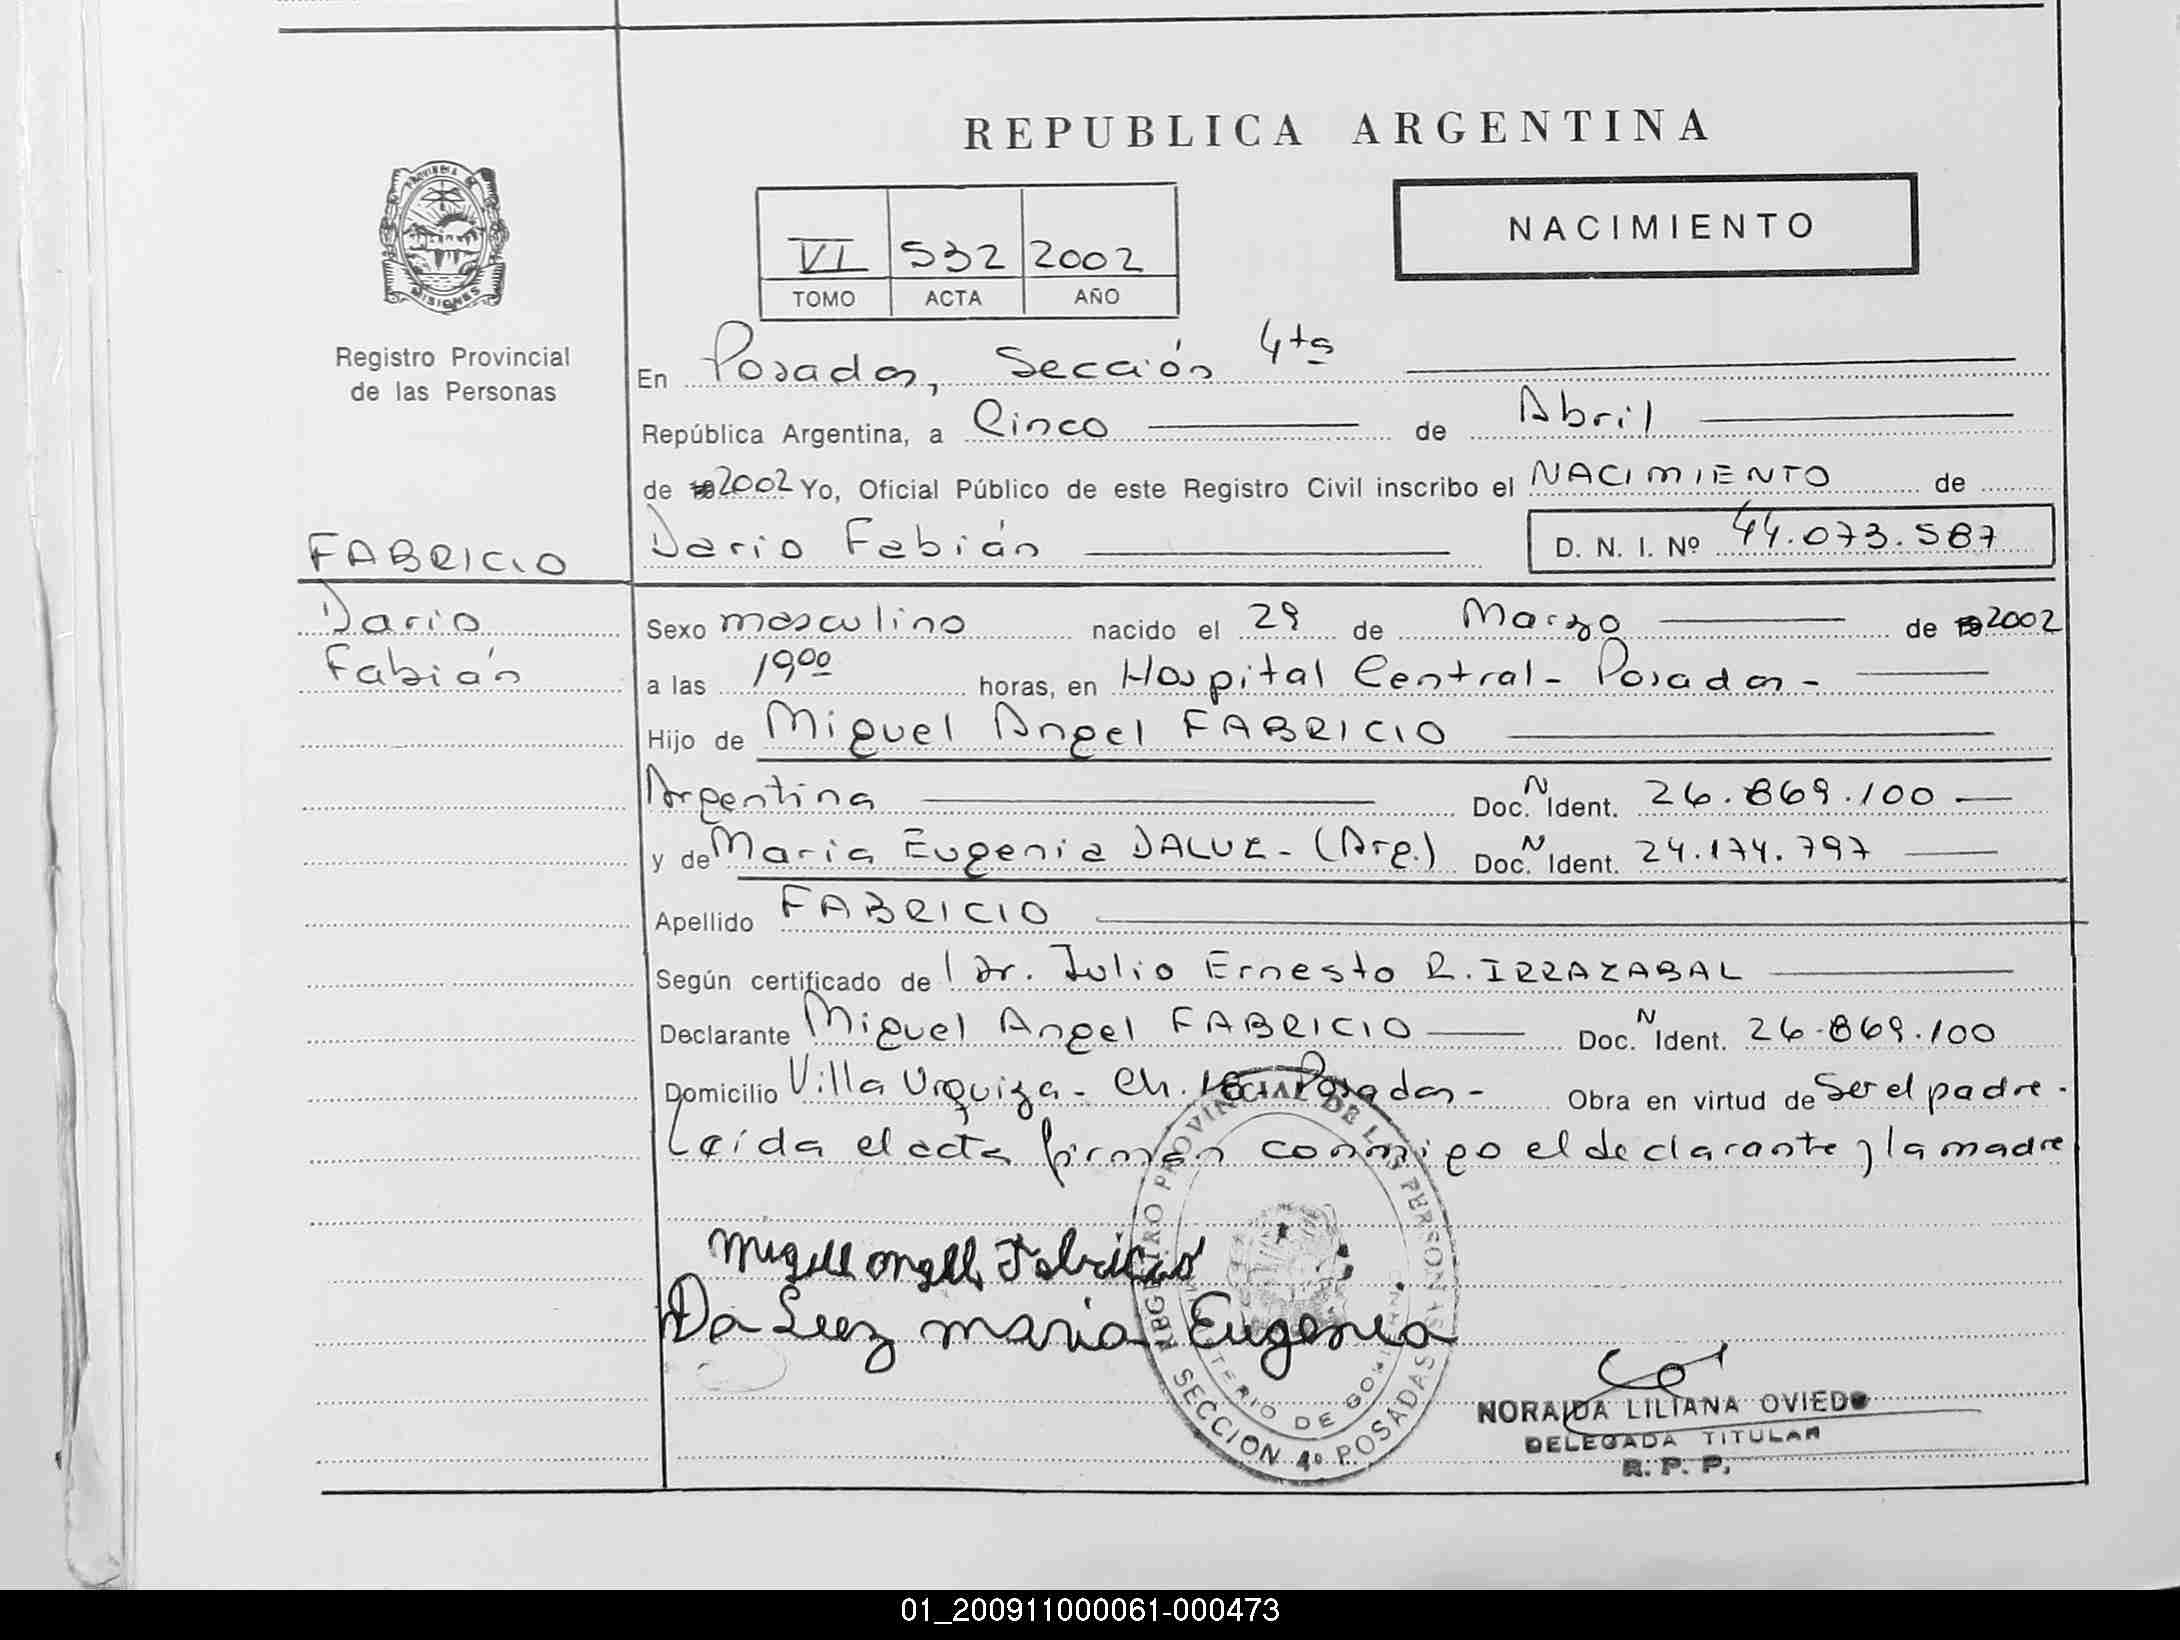 REPUBLICA ARGENTINA
NACIMIENTO
VI 532 2002
TOMO ACTA AÑO
PROVINCIA DE
MISIONES
Registro Provincial
de las Personas
En Posadas, Sección 4ta
República Argentina, a Cinco de Abril
de 2002 Yo, Oficial Público de este Registro Civil inscribo el NACIMIENTO de
FABRICIO Dario Fabián D. N. I. Nº 44.073.587
Dario Sexo masculino nacido el 29 de Marzo de 2002
Fabián a las 1900 horas, en Hospital Central - Posadas -
Hijo de Miguel Angel FABRICIO
Argentina Doc. N Ident. 26.869.100
y de Maria Eugenia DALUZ - (Arg.) Doc. N Ident. 24.174.797
Apellido FABRICIO
Según certificado de l Dr. Julio Ernesto R. IRRAZABAL
Declarante Miguel Angel FABRICIO Doc. N Ident. 26.869.100
Domicilio Villa Urquiza - Ch. Posadas - Obra en virtud de Ser el padre.
Leída el acta firman conmigo el declarante y la madre
REGISTRO PROVINCIAL DE LAS PERSONAS
MINISTERIO DE GOBIERNO
SECCION 4º POSADAS
Da Luz maria Eugenia
NORAIDA LILIANA OVIEDO
DELEGADA TITULAR
R. P. P.
01_200911000061-000473